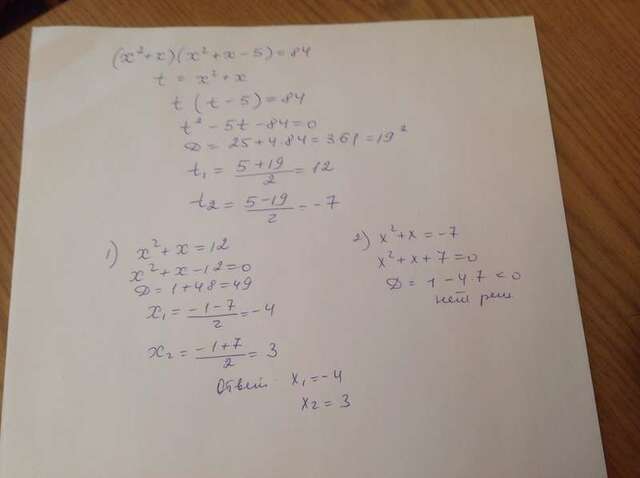 (x²+x)(x²+x-5)=84
t = x²+x
t(t-5)=84
t²-5t-84=0
D = 25+4·84=361=19²
t₁ = (5+19)/2 = 12
t₂ = (5-19)/2 = -7
1) x²+x=12
x²+x-12=0
D=1+48=49
x₁ = (-1-7)/2 = -4
x₂ = (-1+7)/2 = 3
2) x²+x=-7
x²+x+7=0
D = 1-4·7<0
нет реш.
Ответ: x₁=-4
x₂=3